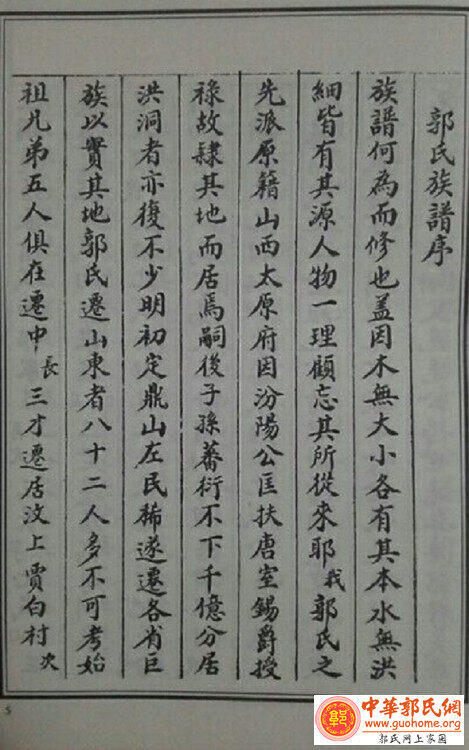 郭氏族譜序
族譜何為而修也蓋因木無大小各有其本水無洪
細皆有其源人物一理顧忘其所從來耶我郭氏之
先派原籍山西太原府因汾陽公匡扶唐室錫爵授
祿故隸其地而居焉嗣後子孫蕃衍不下千億分居
洪洞者亦復不少明初定鼎山左民稀遂遷各省巨
族以實其地郭氏遷山東者八十二人多不可考始
祖凡弟五人俱在遷中長三才遷居汶上賈白村次
5
中華郭氏網
www.guohome.org
郭氏网上家园